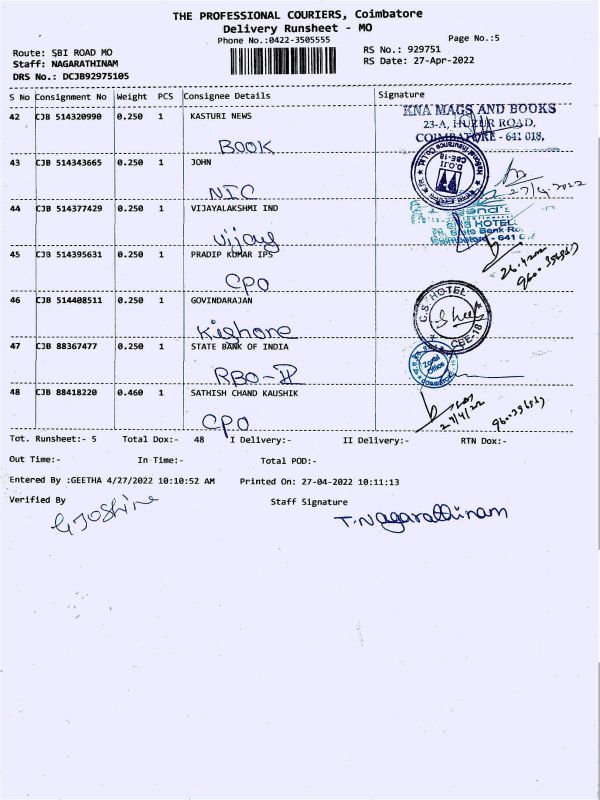 THE PROFESSIONAL COURIERS, Coimbatore
Delivery Runsheet - MO
Phone No.:0422-3505555
Page No.:5
Route: SBI ROAD MO
RS No.: 929751
Staff: NAGARATHINAM
RS Date: 27-Apr-2022
DRS No.: DCJB92975105
S No Consignment No Weight PCS Consignee Details Signature
42 CJB 514320990 0.250 1 KASTURI NEWS
KNA MAGS AND BOOKS
23-A, HUZUR ROAD,
COIMBATORE - 641 018.
BOOK
43 CJB 514343665 0.250 1 JOHN
NIC
27/4.2022
44 CJB 514377429 0.250 1 VIJAYALAKSHMI IND
Vijay
45 CJB 514395631 0.250 1 PRADIP KUMAR IPS
CPO
46 CJB 514408511 0.250 1 GOVINDARAJAN
C.S. HOTEL
CBE-18
Kishore
47 CJB 88367477 0.250 1 STATE BANK OF INDIA
Zonal Office
RBO-II
48 CJB 88418220 0.460 1 SATHISH CHAND KAUSHIK
27/4/22
CPO
Tot. Runsheet:- 5 Total Dox:- 48 I Delivery:- II Delivery:- RTN Dox:-
Out Time:- In Time:- Total POD:-
Entered By :GEETHA 4/27/2022 10:10:52 AM Printed On: 27-04-2022 10:11:13
Verified By Staff Signature
T.Nagarathinam